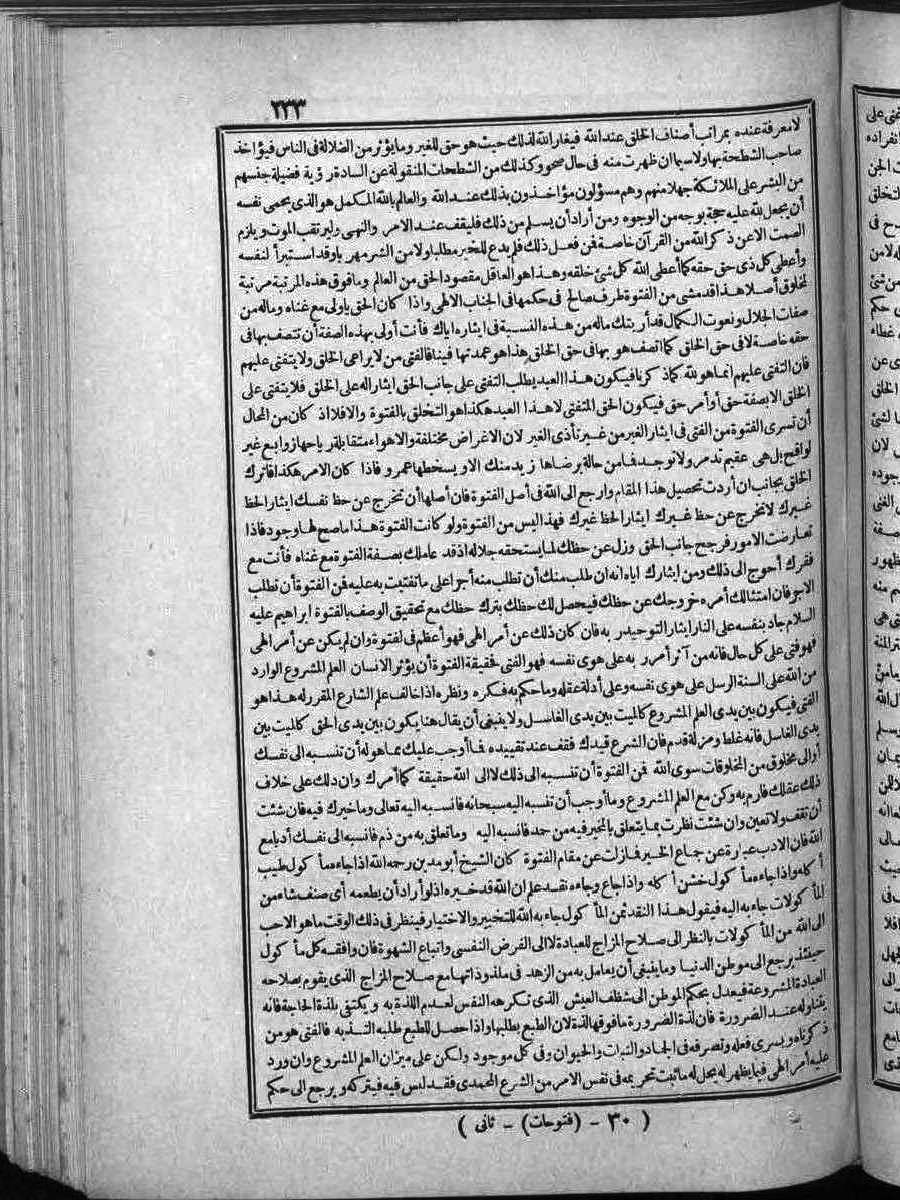 ٢٣٣
لا معرفة عنده بمراتب أصناف الخلق عند الله فيغار الله لذلك حيث هو حق للغير وما يؤثر من الضلالة فى الناس فيؤاخذ
صاحب الشطحة بها ولا سيما ان ظهرت منه فى حال صحو وكذلك من الشطحات المنقولة عن السادة رؤية فضيلة جنسهم
من البشر على الملائكة جهلا منهم وهم مسؤلون مؤاخذون بذلك عند الله والعالم بالله المكمل هو الذى يحمى نفسه
أن يجعل لله عليه حجة بوجه من الوجوه ومن أراد أن يسلم من ذلك فليقف عند الامر والنهى وليرتقب الموت ويلزم
الصمت الا عن ذكر الله من القرآن خاصة فمن فعل ذلك فلم يدع للخير مطلبا ولا من الشر مهربا وقد استبرأ لنفسه
وأعطى كل ذى حق حقه كما أعطى الله كل شئ خلقه وهذا هو العاقل مقصود الحق من العالم وما فوق هذه المرتبة مرتبة
لمخلوق أصلا هذا قد مشى من الفتوة طرف صالح فى حكمها فى الجناب الالهى واذا كان الحق يا ولى مع غناه وماله من
صفات الجلال ونعوت الكمال قد أريتك ماله من هذه النسبة فى ايثاره اياك فأنت أولى بهذه الصفة أن تتصف بها فى
حقه خاصة لا فى حق الخلق كما اتصف هو بها فى حق الخلق هذا هو عمدتها فينا فالفتى من لا يراعى الخلق ولا يتفتى عليهم
فان التفتى عليهم انما هو لله كما ذكرنا فيكون هذا العبد يطلب التفتى على جانب الحق ايثارا له على الخلق فلا يتفتى على
الخلق الا بصفة حق أو أمر حق فيكون الحق المتفتى لا هذا العبد هكذا هو التخلق بالفتوة والا فلا اذ كان من المحال
أن تسرى الفتوة من الفتى فى ايثار الغير من غير تأذى الغير لان الاغراض مختلفة والاهواء متقابلة رياحها زوابع غير
لواقح بل هى عقيم تدمر ولا توجد فما من حالة يرضاها زيد منك الا ويسخطها عمرو فاذا كان الامر هكذا فاترك
الخلق بجانب ان أردت تحصيل هذا المقام وارجع الى الله فى أصل الفتوة فان أصلها أن تخرج عن حظ نفسك ايثارا لحظ
غيرك لا تخرج عن حظ غيرك ايثارا لحظ غيرك فهذا ليس من الفتوة ولو كانت الفتوة هذا ما صح لها وجود فاذا
تعارضت الامور فرجح جانب الحق وزل عن حظك لما يستحقه جلاله اذ قد عاملك بصفة الفتوة مع غناه فأنت مع
فقرك أحوج الى ذلك ومن ايثارك اياه انه ان طلب منك أن تطلب منه أجرا على ما تفتيت به عليه فمن الفتوة أن تطلب
الاجر فان امتثالك أمره خروجك عن حظك فيحصل لك حظك بترك حظك مع تحقيق الوصف بالفتوة ابراهيم عليه
السلام جاد بنفسه على النار ايثارا لتوحيد ربه فان كان ذلك عن أمر الهى فهو أعظم فى الفتوة وان لم يكن عن أمر الهى
فهو فتى على كل حال فانه من آثر أمر ربه على هوى نفسه فهو الفتى فحقيقة الفتوة أن يؤثر الانسان العلم المشروع الوارد
من الله على ألسنة الرسل على هوى نفسه وعلى أدلة عقله وما حكم به فكره ونظره اذا خالف علم الشارع المقرر له هذا هو
الفتى فيكون بين يدى العلم المشروع كالميت بين يدى الغاسل ولا ينبغى أن يقال هنا يكون بين يدى الحق كالميت بين
يدى الغاسل فانه غلط ومزلة قدم فان الشرع قيدك فقف عند تقييده فما أوجب عليك مما هو له أن تنسبه الى نفسك
أو الى مخلوق من المخلوقات سوى الله فمن الفتوة أن تنسبه الى ذلك لا الى الله حقيقة كما أمرك وان دلك على خلاف
ذلك عقلك فارم به وكن مع العلم المشروع وما أوجب أن تنسبه اليه سبحانه فانسبه اليه تعالى وما خيرك فيه فان شئت
أن تقف ولا تعين وان شئت نظرت بما يتعلق بالمخير فيه من حمد فانسبه اليه وما تعلق به من ذم فانسبه الى نفسك أدبا مع
الله فان الادب عبارة عن جماع الخير فما زلت عن مقام الفتوة كان الشيخ أبو مدين رحمه الله اذا جاءه مأكول طيب
أكله واذا جاءه مأكول خشن أكله واذا جاع وجاءه نقد علم ان الله قد خيره اذ لو أراد أن يطعمه أى صنف شاء من
المأكولات جاء به اليه فيقول هذا النقد ثمن المأكول جاء به الله للتخيير والاختبار فينظر فى ذلك الوقت ما هو الاحب
الى الله من المأكولات بالنظر الى صلاح المزاج للعبادة لا الى الغرض النفسى واتباع الشهوة فان وافقه كل مأكول
حينئذ يرجع الى موطن الدنيا وما ينبغى أن يعامل به من الزهد فى ملذوذاتها مع صلاح المزاج الذى يقوم بصلاحه
العبادة المشروعة فيعدل بحكم الموطن الى شظف العيش الذى تكرهه النفس لعدم اللذة به ويكتفى بلذة الحاجة فانه
يتناوله عند الضرورة فان لذة الضرورة ما فوقها لذة لان الطبع يطلبها واذا حصل للطبع طلبه التذ به فالفتى هو من
ذكرناه ويسرى فعله وتصرفه فى الجماد والنبات والحيوان وفى كل موجود ولكن على ميزان العلم المشروع وان ورد
عليه أمر الهى فيما يظهر له يحل له ما ثبت تحريمه فى نفس الامر من الشرع المحمدى فقد لبس فيه فيتركه ويرجع الى حكم
( ٣٠ - (فتوحات) - ثانى )